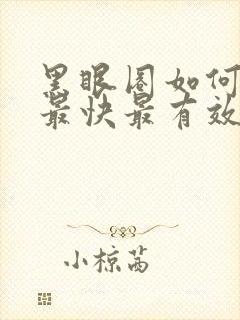 黑眼圈如何
最快最有效
小椋茜